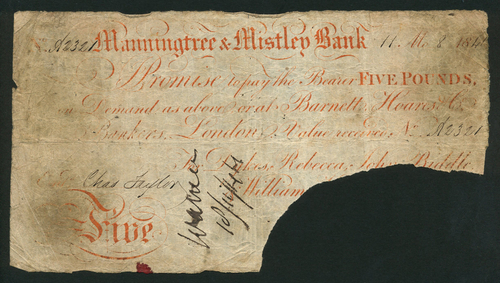 A2321 Manningtree & Mistley Bank 11. Mo. 8. 18
I Promise to pay the Bearer FIVE POUNDS,
on Demand as above or at Barnett, Hoares, & Co.
Bankers, London, Value received No. A2321
Rebecca, John
Chas Taylor William
Five